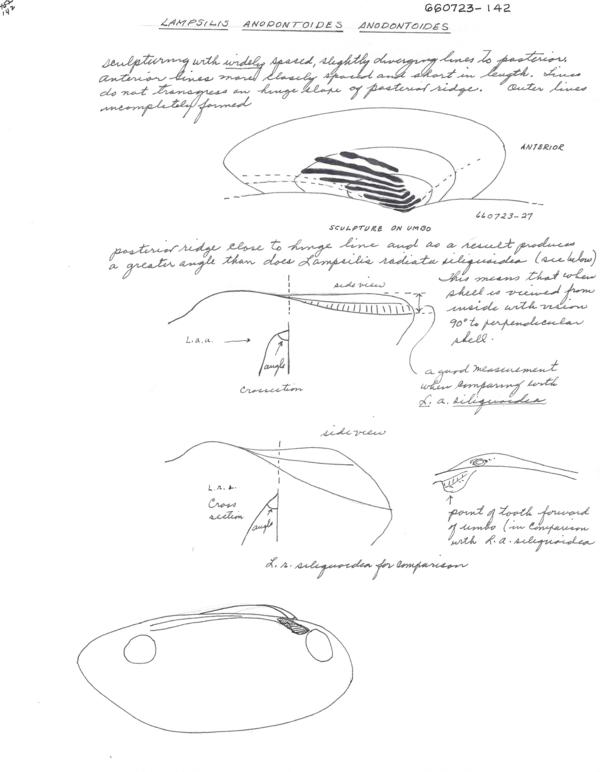 302
142
660723-142
LAMPSILIS ANODONTOIDES ANODONTOIDES
Sculpturing with widely spaced, slightly diverging lines to posterior.
Anterior lines more closely spaced and short in length. Lines
do not transgress on hinge slope of posterior ridge. Outer lines
incompletely formed
ANTERIOR
660723-27
SCULPTURE ON UMBO
posterior ridge close to hinge line and as a result produces
a greater angle than does Lampsilis radiata siliquoidea (see below)
This means that when
shell is viewed from
inside with vision
90° to perpendicular
shell.
side view
L.a.a.
angle
Crossection
a good measurement
when comparing with
L. a. siliquoidea
side view
L.r.s.
Cross
section
angle
point of tooth forward
of umbo (in comparison
with L. a. siliquoidea
L. r. siliquoidea for comparison